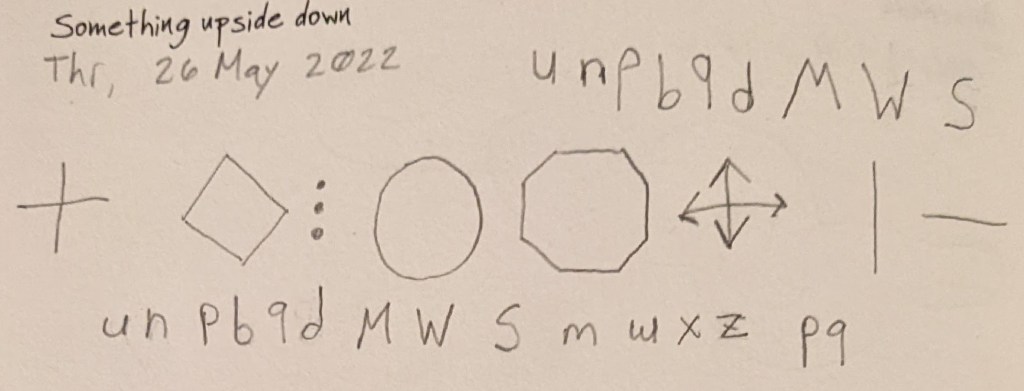 Something upside down
Thr, 26 May 2022
u n p b q d M W S
u n p b q d M W S m w x z p q